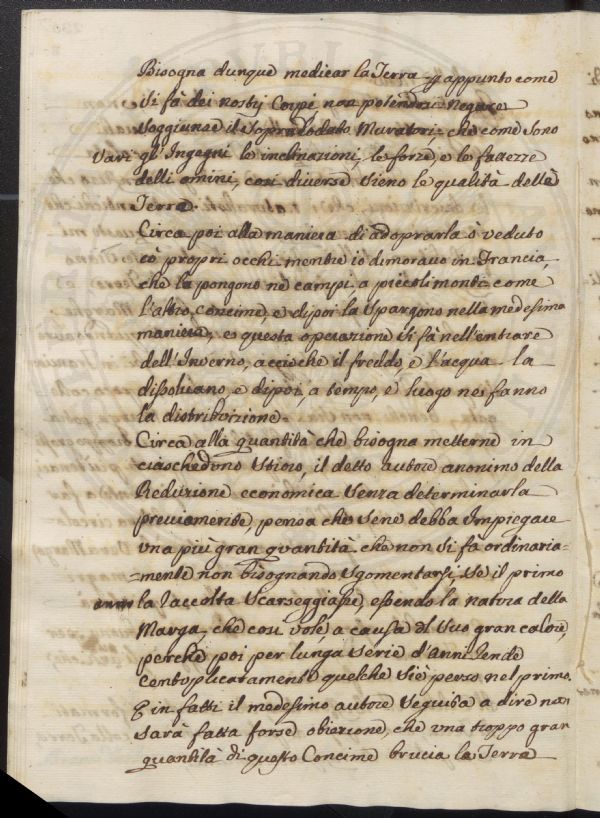 Bisogna dunque medicar la Terra appunto come
si fà dei nostri Corpi non potendosi Negare
soggiunse il sopradodato Muratori, che come sono
vari gl'Ingegni le inclinazioni, le forze, e le fattezze
delli omini, così diverse sieno le qualità della
Terra.
Circa poi alla maniera di adoprarla ò veduto
cò propri occhi mentre io dimoravo in Francia,
che la pongono ne campi, a piccoli monti come
l'altro concime, e di poi la spargono nella medesima
maniera, e questa operazione si fà nell'entrare
dell'Inverno, accioche il freddo, e l'acqua la
dissolvano, e di poi, a tempo, e luogo ne fanno
la distribuizione.
Circa alla quantità che bisogna metterne in
ciascheduno stioro, il detto autore anonimo della
Reduzione economica senza determinarla
precisamente, pensa che sene debba Impiegare
una più gran quantità che non si fà ordinaria=
=mente non bisognando sgomentarsi, se il primo
anno la raccolta scarseggiasse, essendo la natura della
Marga, che così vole, a causa del suo gran calore,
perche poi per lunga serie d'anni rende
centoplicatamente quelche siè perso nel primo.
E in fatti il medesimo autore seguita a dire non
sarà fatta forse obiezione, che una troppo gran
quantità di questo Concime brucia la Terra